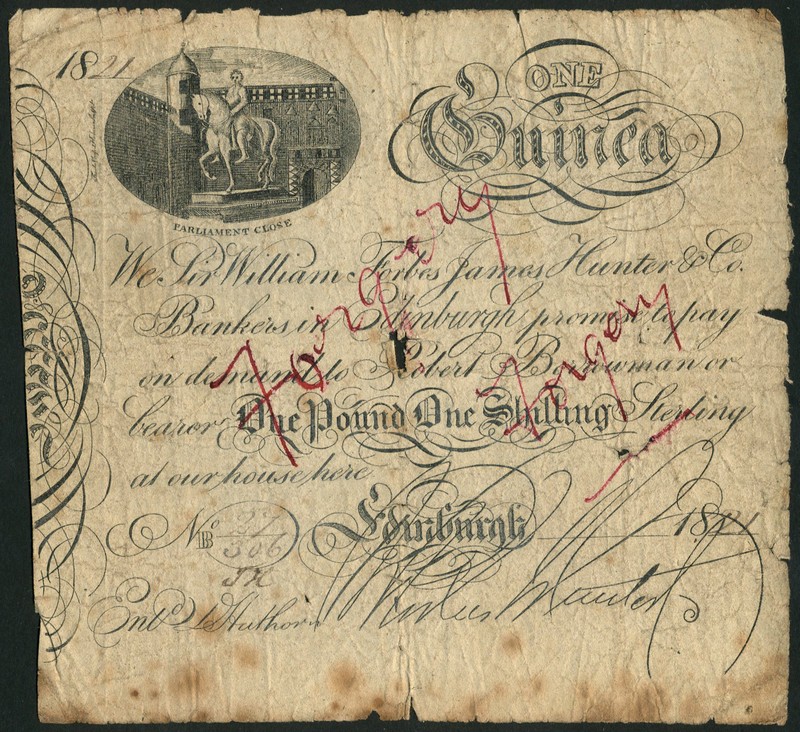 1821
ONE
Guinea
PARLIAMENT CLOSE
We Sir William Forbes James Hunter & Co.
Bankers in Edinburgh promise to pay
on demand to Robert Borrowman or
bearer One Pound One Shilling Sterling
at our house here
Forgery
Forgery
No
B
306
Edinburgh
1821
Entd